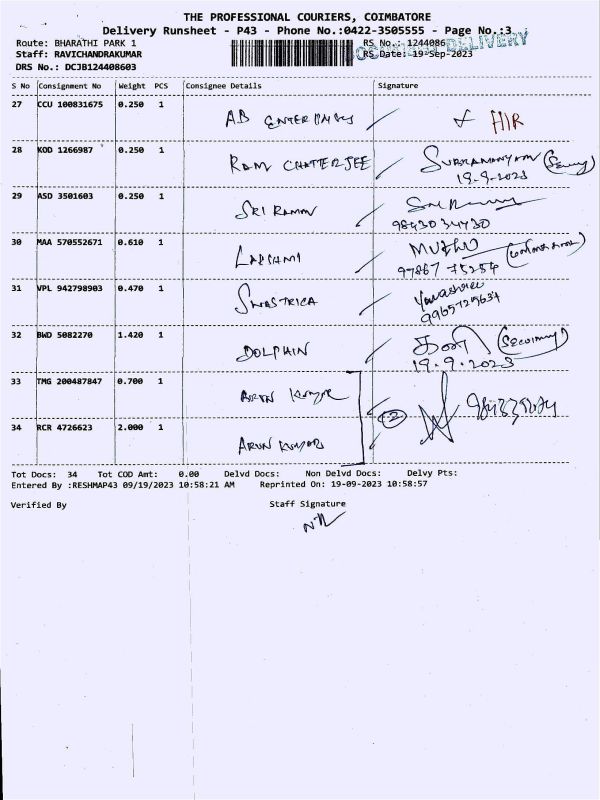 THE PROFESSIONAL COURIERS, COIMBATORE
Delivery Runsheet - P43 - Phone No.:0422-3505555 - Page No.:3
Route: BHARATHI PARK 1 RS No.: 1244086
Staff: RAVICHANDRAKUMAR RS Date: 19-Sep-2023
DELIVERY
DRS No.: DCJB124408603
S No Consignment No Weight PCS Consignee Details Signature
27 CCU 100831675 0.250 1 AB ENTERPRISES HIR
28 KOD 1266987 0.250 1 RAM CHATTERJEE SUBRAMANYAM
19.9.2023
29 ASD 3501603 0.250 1 SRI RAMAN
9843034430
30 MAA 570552671 0.610 1 LAKSHMI MUTHU
97867 75254
31 VPL 942798903 0.470 1 SWASTRICA
9965729634
32 BWD 5082270 1.420 1 DOLPHIN
19.9.2023
33 TMG 200487847 0.700 1 ARUN KUMAR
34 RCR 4726623 2.000 1 ARUN KUMAR
Tot Docs: 34 Tot COD Amt: 0.00 Delvd Docs: Non Delvd Docs: Delvy Pts:
Entered By :RESHMAP43 09/19/2023 10:58:21 AM Reprinted On: 19-09-2023 10:58:57
Verified By Staff Signature